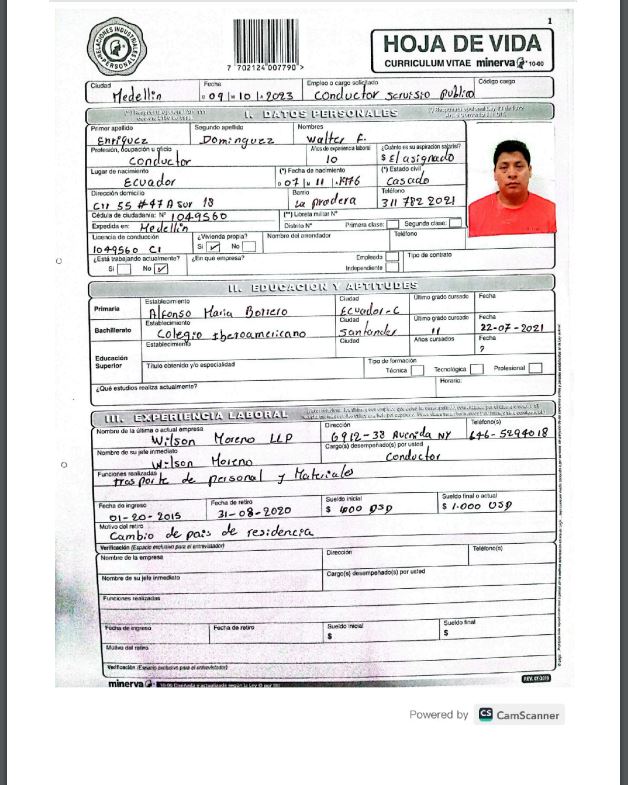 1
RELACIONES INDUSTRIALES
PERSONAL
7 702124 007790 >
HOJA DE VIDA
CURRICULUM VITAE minerva 10-00
Ciudad Fecha Empleo o cargo solicitado Código cargo
Medellin 09 10 2023 conductor servisio publico
I. DATOS PERSONALES
Primer apellido Segundo apellido Nombres
Enriquez Dominguez Walter F.
Profesión, ocupación u oficio Años de experiencia laboral ¿Cuánto es su aspiración salarial?
Conductor 10 $ El asignado
Lugar de nacimiento (*) Fecha de nacimiento (*) Estado civil
Ecuador 07 11 1976 Casado
Dirección domicilio Barrio Teléfono
Cll 55 #47A sur 18 La pradera 311 782 2021
Cédula de ciudadanía: N° 1049560 (**) Libreta militar N°
Expedida en: Medellin Distrito N° Primera clase: Segunda clase:
Licencia de conducción ¿Vivienda propia? Nombre del arrendador Teléfono
1049560 C1 Si No
¿Está trabajando actualmente? ¿En que empresa? Empleado Tipo de contrato
Si No Independiente
II. EDUCACION Y APTITUDES
Establecimiento Ciudad Último grado cursado Fecha
Primaria Alfonso Maria Borrero Ecuador-C
Establecimiento Ciudad Último grado cursado Fecha
Bachillerato Colegio Iberoamericano Santander 11 22-07-2021
Establecimiento Ciudad Años cursados Fecha
Educación Superior
Título obtenido y/o especialidad Tipo de formación
Técnica Tecnológica Profesional
¿Qué estudios realiza actualmente? Horario:
III. EXPERIENCIA LABORAL
Nombre de la última o actual empresa Dirección Teléfono(s)
Wilson Moreno LLP 6912-38 Avenida NY 646-5294018
Nombre de su jefe inmediato Cargo(s) desempeñado(s) por usted
Wilson Moreno Conductor
Funciones realizadas
trasporte de personal y Materiales
Fecha de ingreso Fecha de retiro Sueldo inicial Sueldo final o actual
01-20-2015 31-08-2020 $ 1000 USD $ 1.000 USD
Motivo del retiro
Cambio de pais de residencia
Verificación (Espacio exclusivo para el entrevistador)
Nombre de la empresa Dirección Teléfono(s)
Nombre de su jefe inmediato Cargo(s) desempeñado(s) por usted
Funciones realizadas
Fecha de ingreso Fecha de retiro Sueldo inicial Sueldo final
$ $
Motivo del retiro
Verificación (Espacio exclusivo para el entrevistador)
minerva 10-00
Powered by CS CamScanner